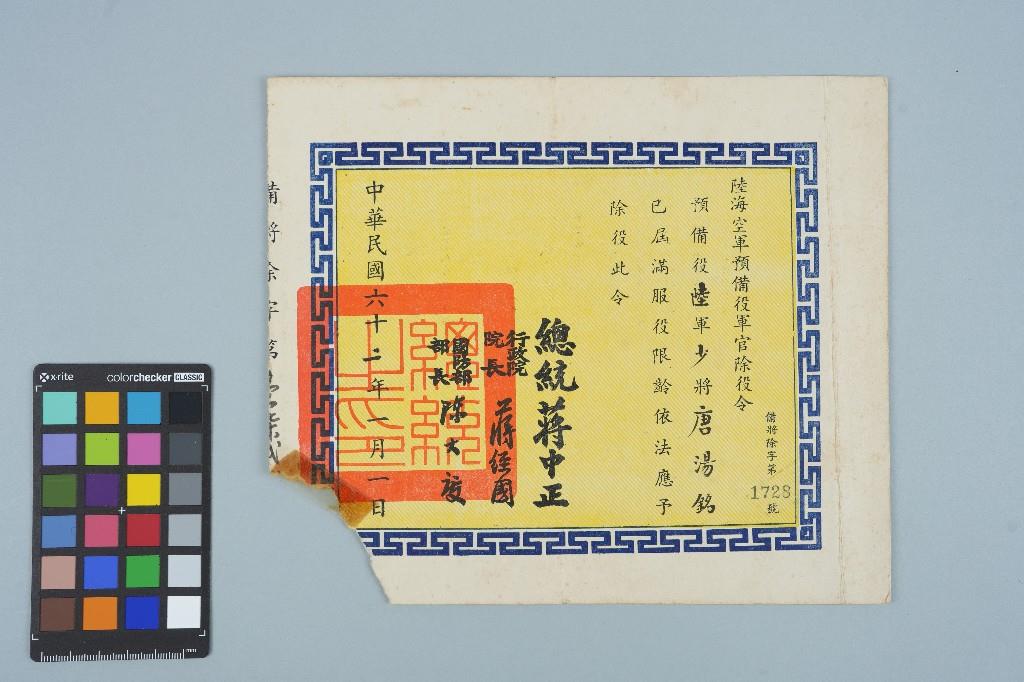 陸海空軍預備役軍官除役令
備將除字第1728號
預備役陸軍少將唐湯銘
已屆滿服役限齡依法應予
除役此令
總統蔣中正
行政院院長蔣經國
國防部部長陳大慶
中華民國六十二年一月一日
備將除字第
總統之印
x-rite
colorchecker CLASSIC
mm